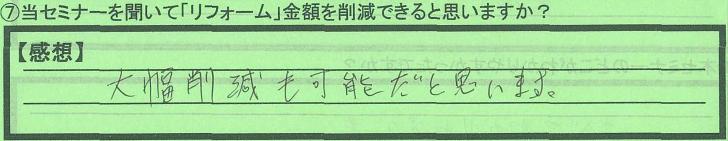 ⑦当セミナーを聞いて「リフォーム」金額を削減できると思いますか？
【感想】
大幅削減も可能だと思います。